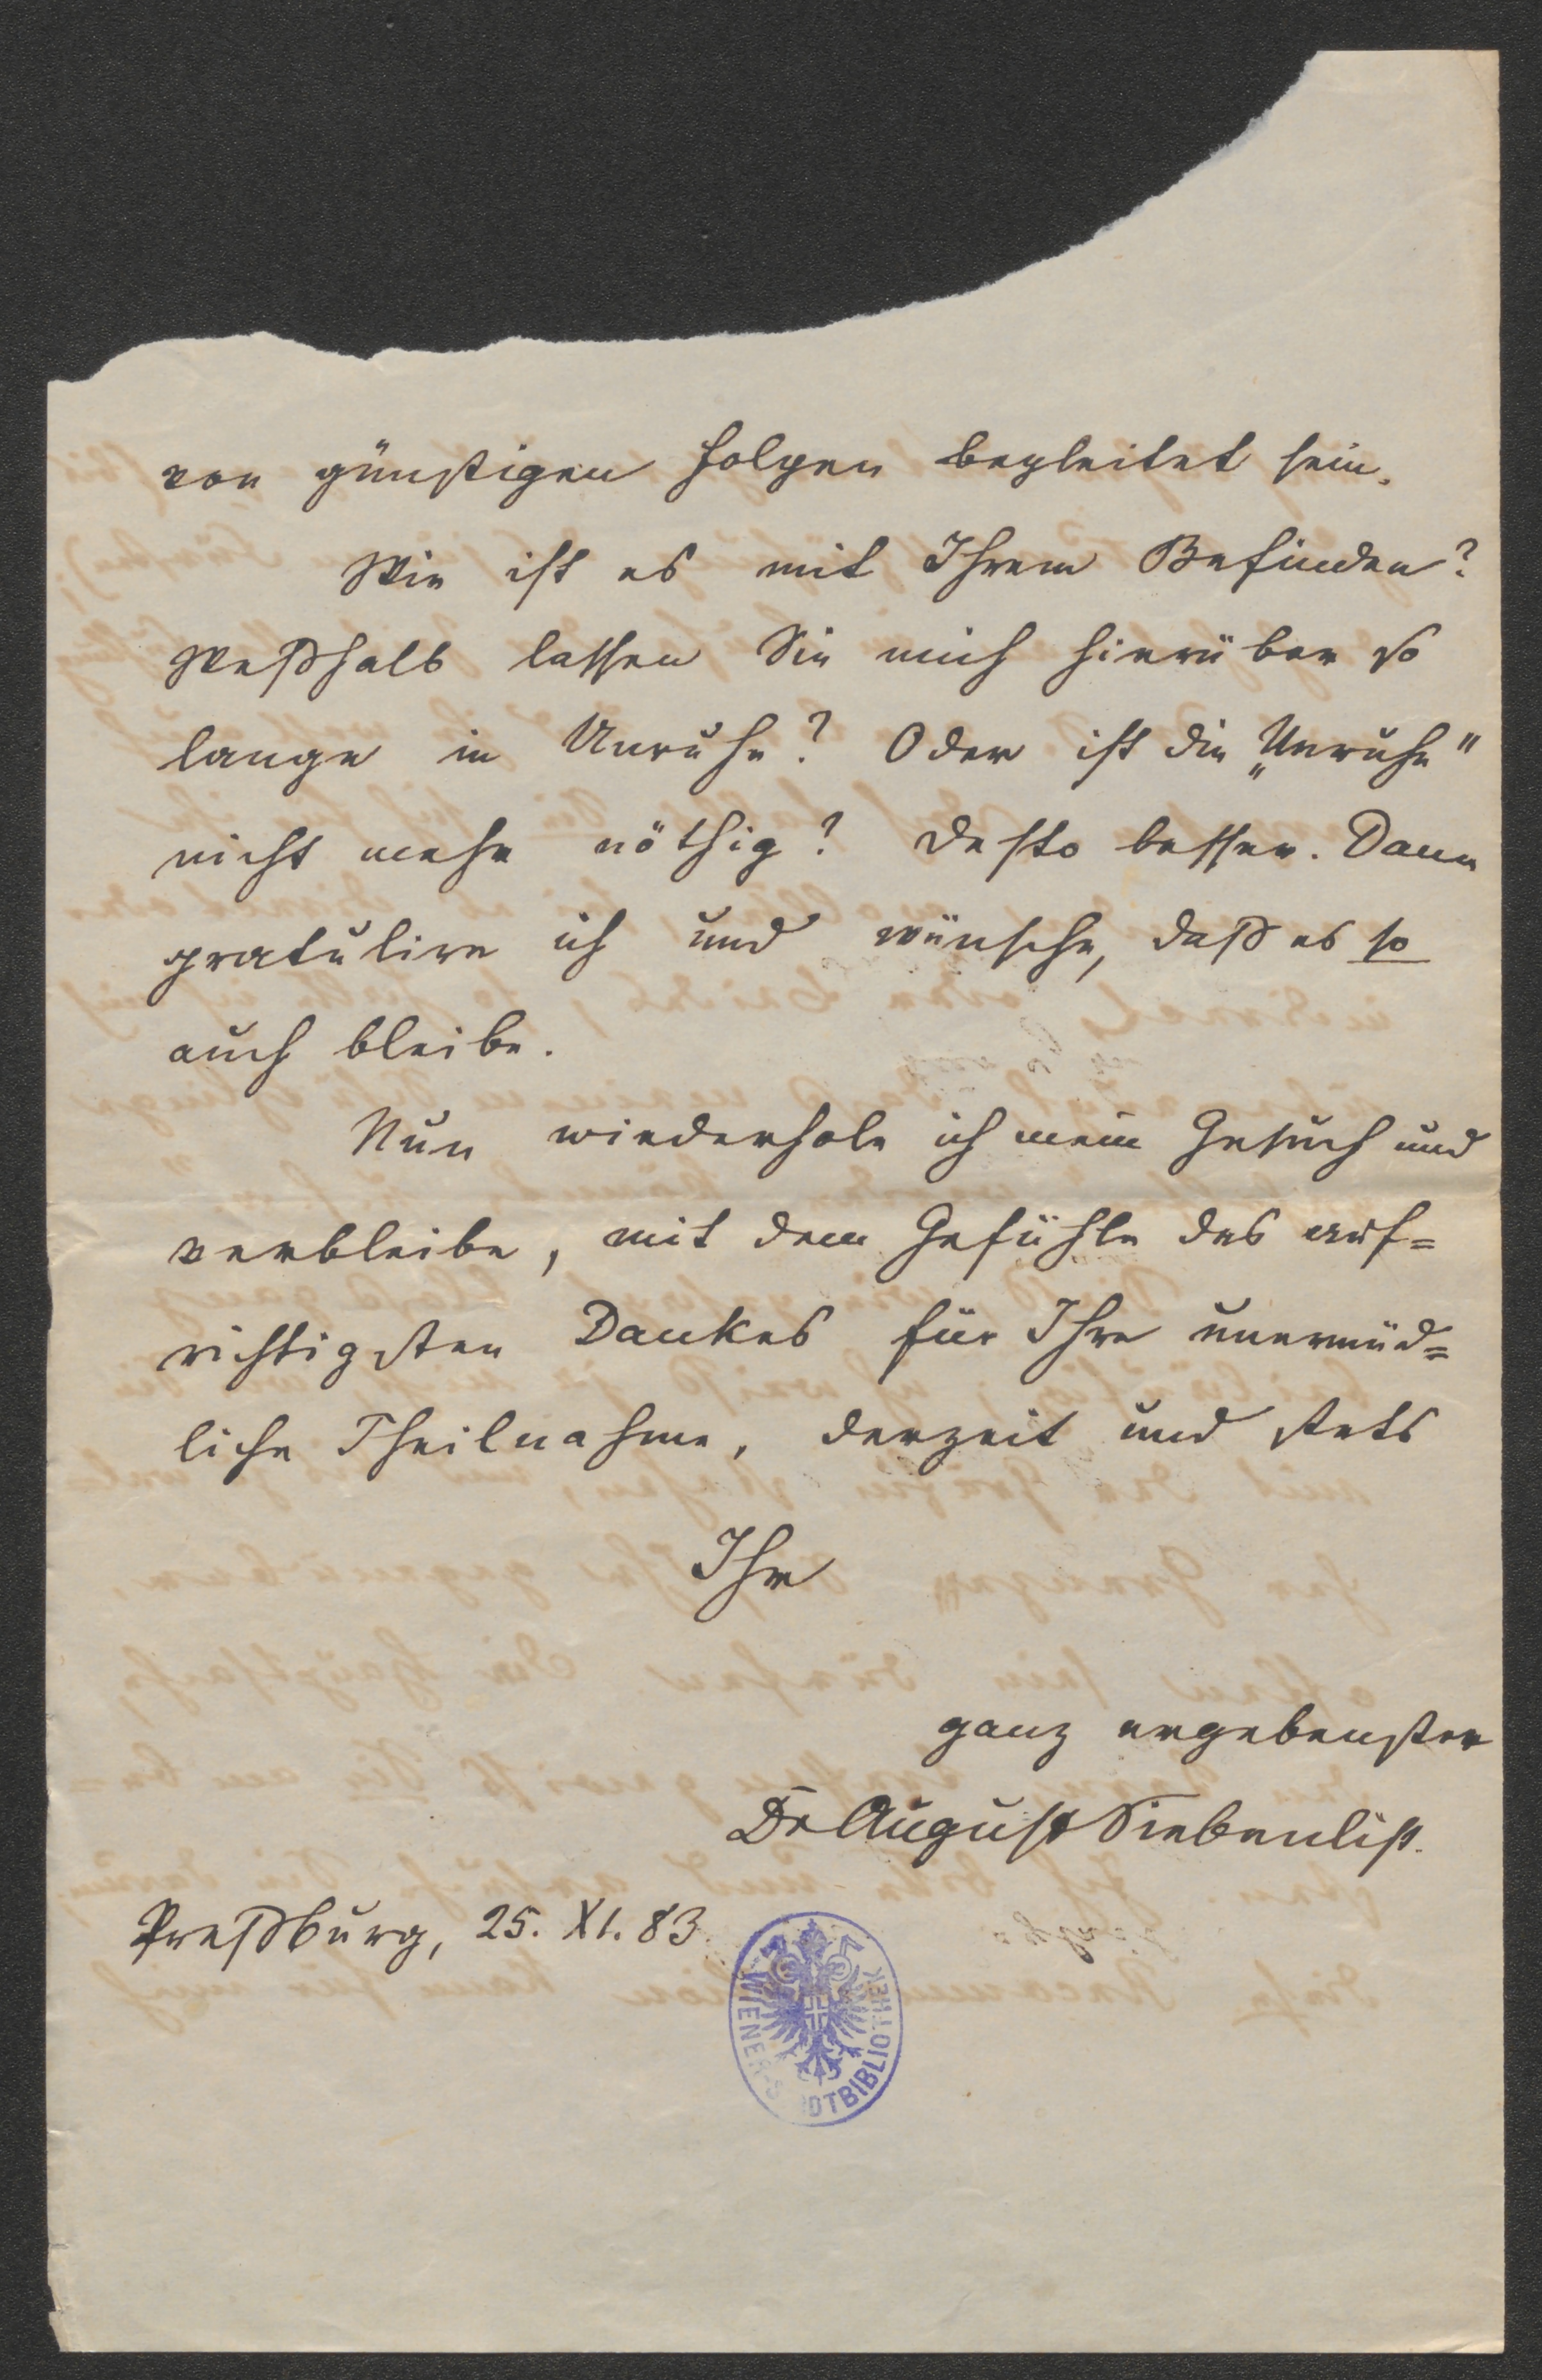 von günstigen Folgen begleitet sein.
Wie ist es mit Ihrem Befinden?
Weßhalb lassen Sie mich hierüber so
lange in Unruhe? Oder ist die „Unruhe"
nicht mehr nöthig? Desto besser. Dann
gratulire ich und wünsche, daß es so
auch bleibe.
Nun wiederhole ich mein Gesuch und
verbleibe, mit dem Gefühle des auf=
richtigsten Dankes für Ihre unermüd=
liche Theilnahme, derzeit und stets
Ihr
ganz ergebenster
Dr August Siebenlist.
Preßburg, 25. XI. 83.
WIENER STADTBIBLIOTHEK